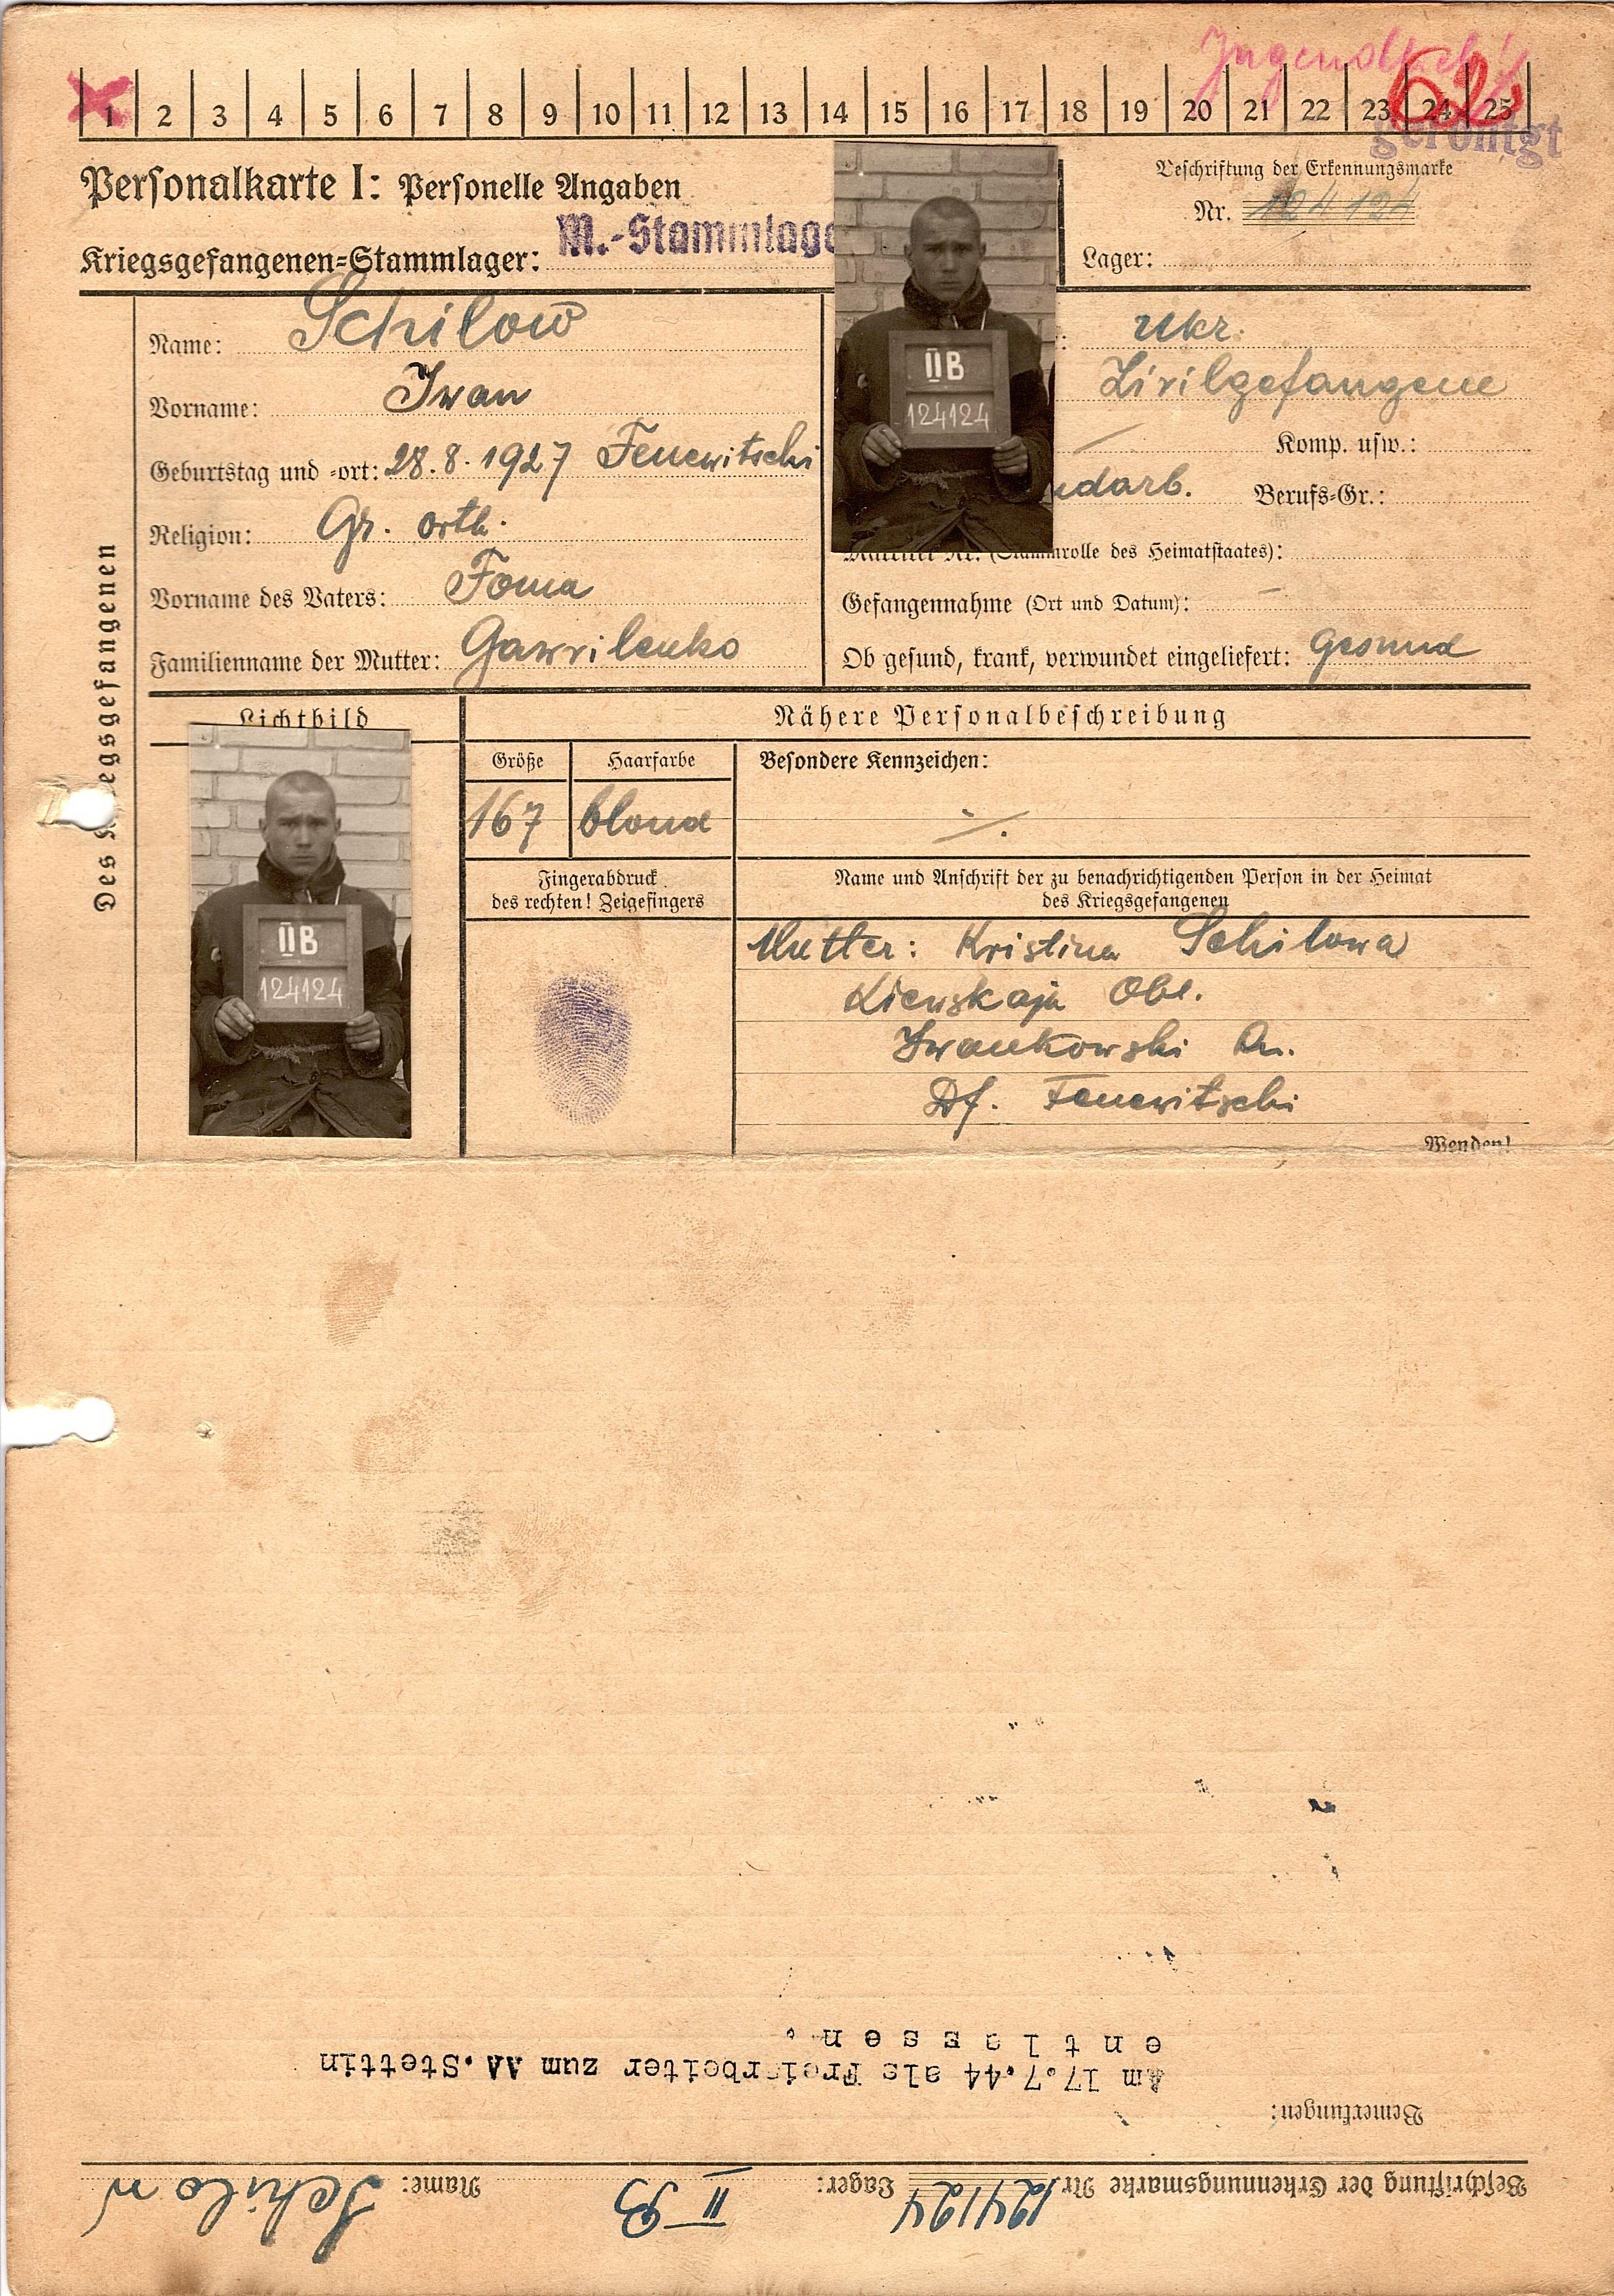 Jugendlich!
62
1 2 3 4 5 6 7 8 9 10 11 12 13 14 15 16 17 18 19 20 21 22 23 24 25
geröntgt
Personalkarte I: Personelle Angaben
Beschriftung der Erkennungsmarke
Nr. 124124
Kriegsgefangenen-Stammlager: M.-Stammlage
Lager:
Des Kriegsgefangenen
Name: Schilow
Vorname: Iwan
Geburtstag und -ort: 28.8.1927 Fenewitschi
Religion: Gr. orth.
Vorname des Vaters: Foma
Familienname der Mutter: Gawrilenko
IIB
124124
: Ukr.
Zivilgefangene
Komp. usw.:
ndarb. Berufs-Gr.:
Matrikel Nr. (Stammrolle des Heimatstaates):
Gefangennahme (Ort und Datum): –
Ob gesund, krank, verwundet eingeliefert: gesund
Lichtbild
IIB
124124
Nähere Personalbeschreibung
Größe Haarfarbe Besondere Kennzeichen:
167 blond ./.
Fingerabdruck
des rechten! Zeigefingers
Name und Anschrift der zu benachrichtigenden Person in der Heimat
des Kriegsgefangenen
Mutter: Kristina Schilowa
Kiewskaja Obl.
Iwankowski Ra.
Df. Fenewitschi
Wenden!
Beschriftung der Erkennungsmarke Nr. 124124 Lager: II B Name: Schilow
Bemerkungen:
Am 17.7.44 als Freiarbeiter zum AA.Stettin
entlassen.